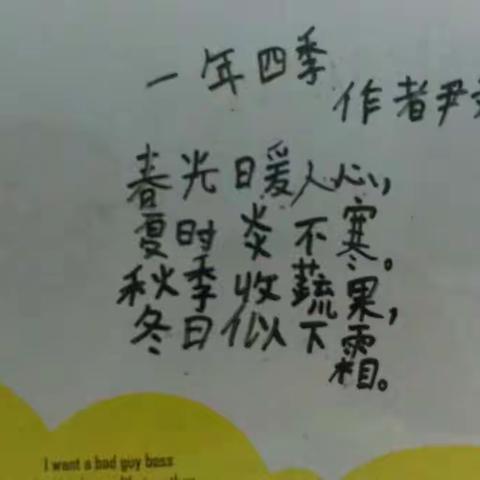 一年四季
作者尹
春光暖人心,
夏时炎不寒。
秋季收蔬果,
冬日似下霜。
I want a bad guy boss